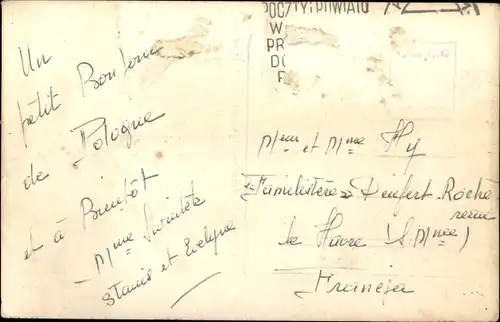 POCZTY I POWIATU
W
PR
DO
P
Un
petit Bonjour
de Pologne
et à Bientôt
- Mme
Stanis et Evelyne
Meur et Mme Hy
"Familistère" Denfert-Roche
reau
Le Havre (S. Mme)
Francja